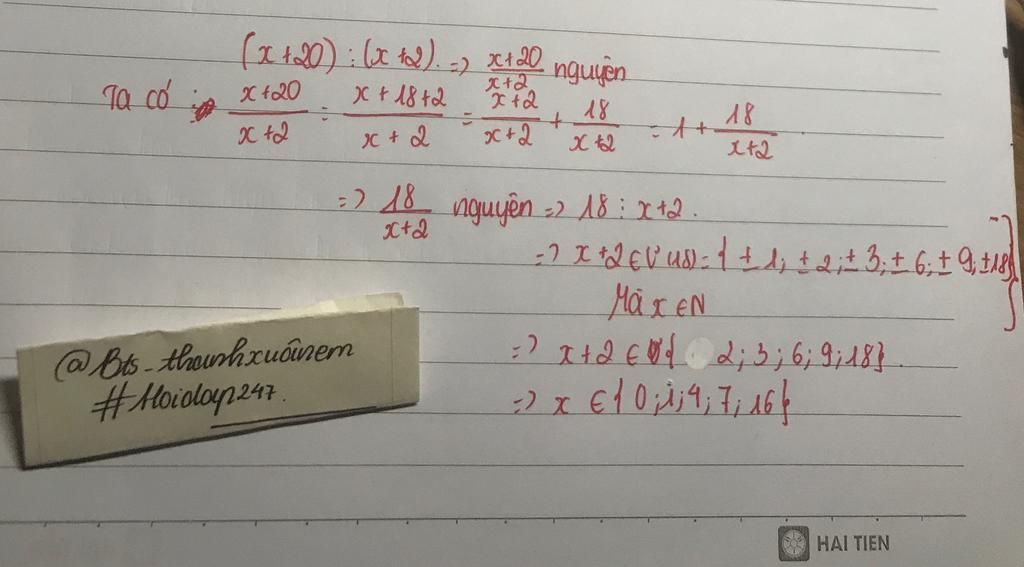 (x+20) ⋮ (x+2). => x+20/x+2 nguyên
Ta có : x+20/x+2 = x+18+2/x+2 = x+2/x+2 + 18/x+2 = 1 + 18/x+2.
=> 18/x+2 nguyên => 18 ⋮ x+2.
=> x+2 ∈ Ư(18) = { ±1; ±2; ±3; ±6; ±9; ±18}
Mà x ∈ N
=> x+2 ∈ { 2; 3; 6; 9; 18}.
=> x ∈ { 0; 1; 4; 7; 16}
@Bts_thanhxuânem
#Hoidap247.
HAI TIEN